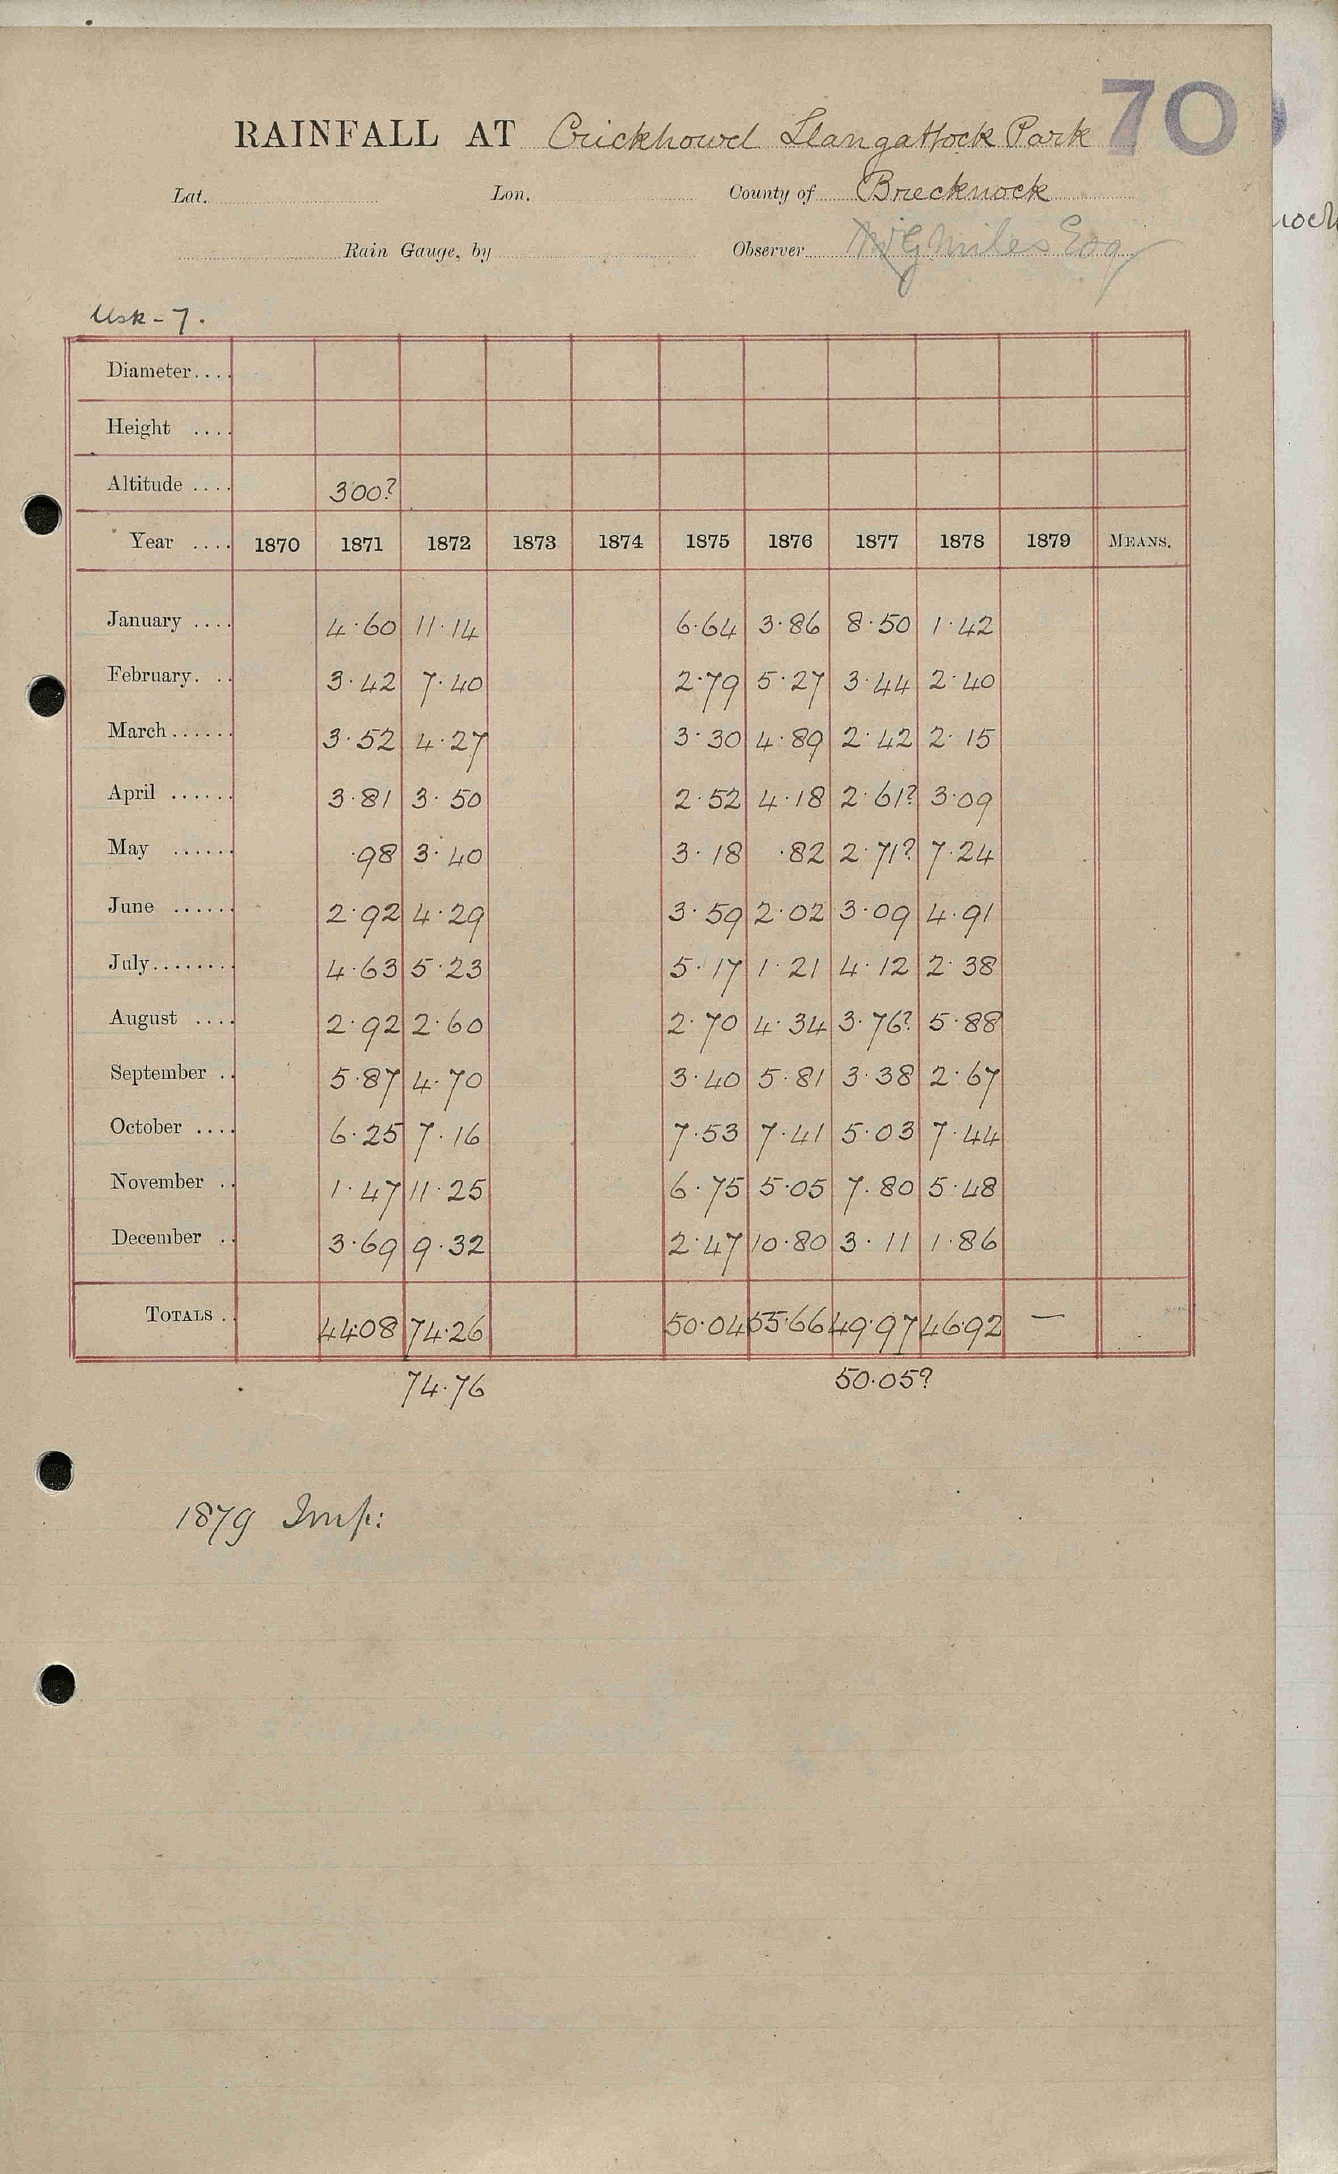 70
RAINFALL AT Crickhowel Llangattock Park
Lat. Lon. County of Brecknock
Rain Gauge, by Observer W G Miles Esq
Usk - 7.
Diameter....
Height ....
Altitude .... 300?
Year .... 1870 1871 1872 1873 1874 1875 1876 1877 1878 1879 MEANS.
January .... 4.60 11.14 6.64 3.86 8.50 1.42
February. .. 3.42 7.40 2.79 5.27 3.44 2.40
March...... 3.52 4.27 3.30 4.89 2.42 2.15
April ...... 3.81 3.50 2.52 4.18 2.61? 3.09
May ...... .98 3.40 3.18 .82 2.71? 7.24
June ...... 2.92 4.29 3.59 2.02 3.09 4.91
July........ 4.63 5.23 5.17 1.21 4.12 2.38
August .... 2.92 2.60 2.70 4.34 3.76? 5.88
September .. 5.87 4.70 3.40 5.81 3.38 2.67
October .... 6.25 7.16 7.53 7.41 5.03 7.44
November .. 1.47 11.25 6.75 5.05 7.80 5.48
December .. 3.69 9.32 2.47 10.80 3.11 1.86
TOTALS .. 44.08 74.26 50.04 55.66 49.97 46.92 —
74.76 50.05?
1879 Imp: